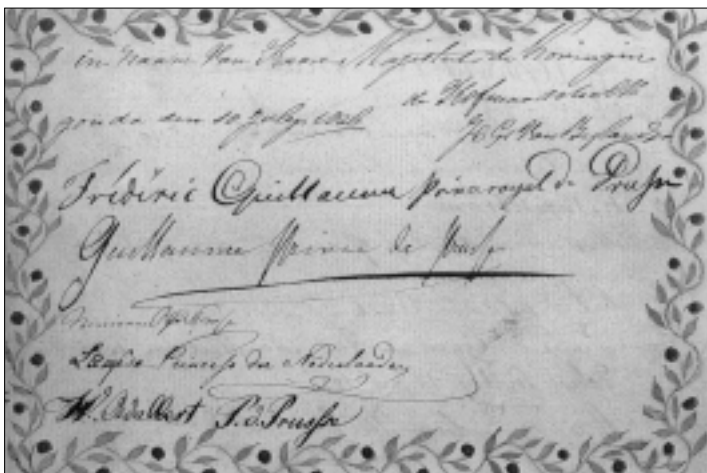 in Naam van Haare Majesteit de Koningin
de Hofmaarschalk
gouda den 10 July
Van
Frédéric Guillaume Prince royal de Prusse
Guillaume Prince de Prusse
Louise Princesse der Nederlanden
W. Adalbert P. d. Prusse